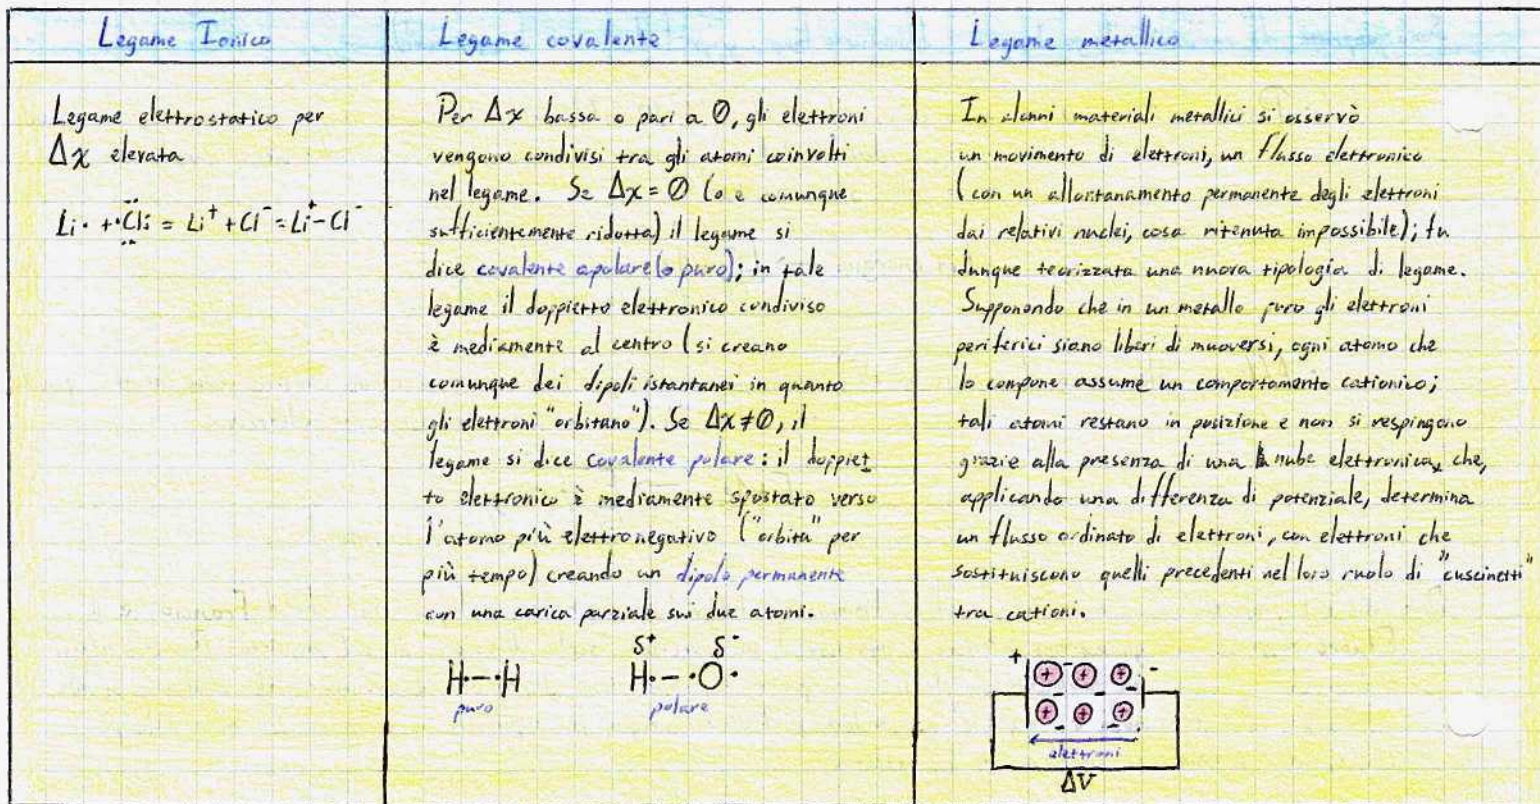 Legame Ionico
Legame elettrostatico per
Δχ elevata
Li· + ·Cl: = Li⁺ + Cl⁻ = Li⁺-Cl⁻
Legame covalente
Per Δχ bassa o pari a 0, gli elettroni
vengono condivisi tra gli atomi coinvolti
nel legame. Se Δχ = 0 (o è comunque
sufficientemente ridotta) il legame si
dice covalente apolare (o puro); in tale
legame il doppietto elettronico condiviso
è mediamente al centro (si creano
comunque dei dipoli istantanei in quanto
gli elettroni "orbitano"). Se Δχ ≠ 0, il
legame si dice covalente polare: il doppiet
to elettronico è mediamente spostato verso
l'atomo più elettronegativo ("orbita" per
più tempo) creando un dipolo permanente
con una carica parziale sui due atomi.
δ⁺ δ⁻
H·-·H H·-·O·
puro polare
Legame metallico
In alcuni materiali metallici si osservò
un movimento di elettroni, un flusso elettronico
(con un allontanamento permanente degli elettroni
dai relativi nuclei, cosa ritenuta impossibile); fu
dunque teorizzata una nuova tipologia di legame.
Supponendo che in un metallo puro gli elettroni
periferici siano liberi di muoversi, ogni atomo che
lo compone assume un comportamento cationico;
tali atomi restano in posizione e non si respingono
grazie alla presenza di una nube elettronica, che,
applicando una differenza di potenziale, determina
un flusso ordinato di elettroni, con elettroni che
sostituiscono quelli precedenti nel loro ruolo di "cuscinetti"
tra cationi.
+ -
+ - + +
- - -
+ + - +
elettroni
ΔV